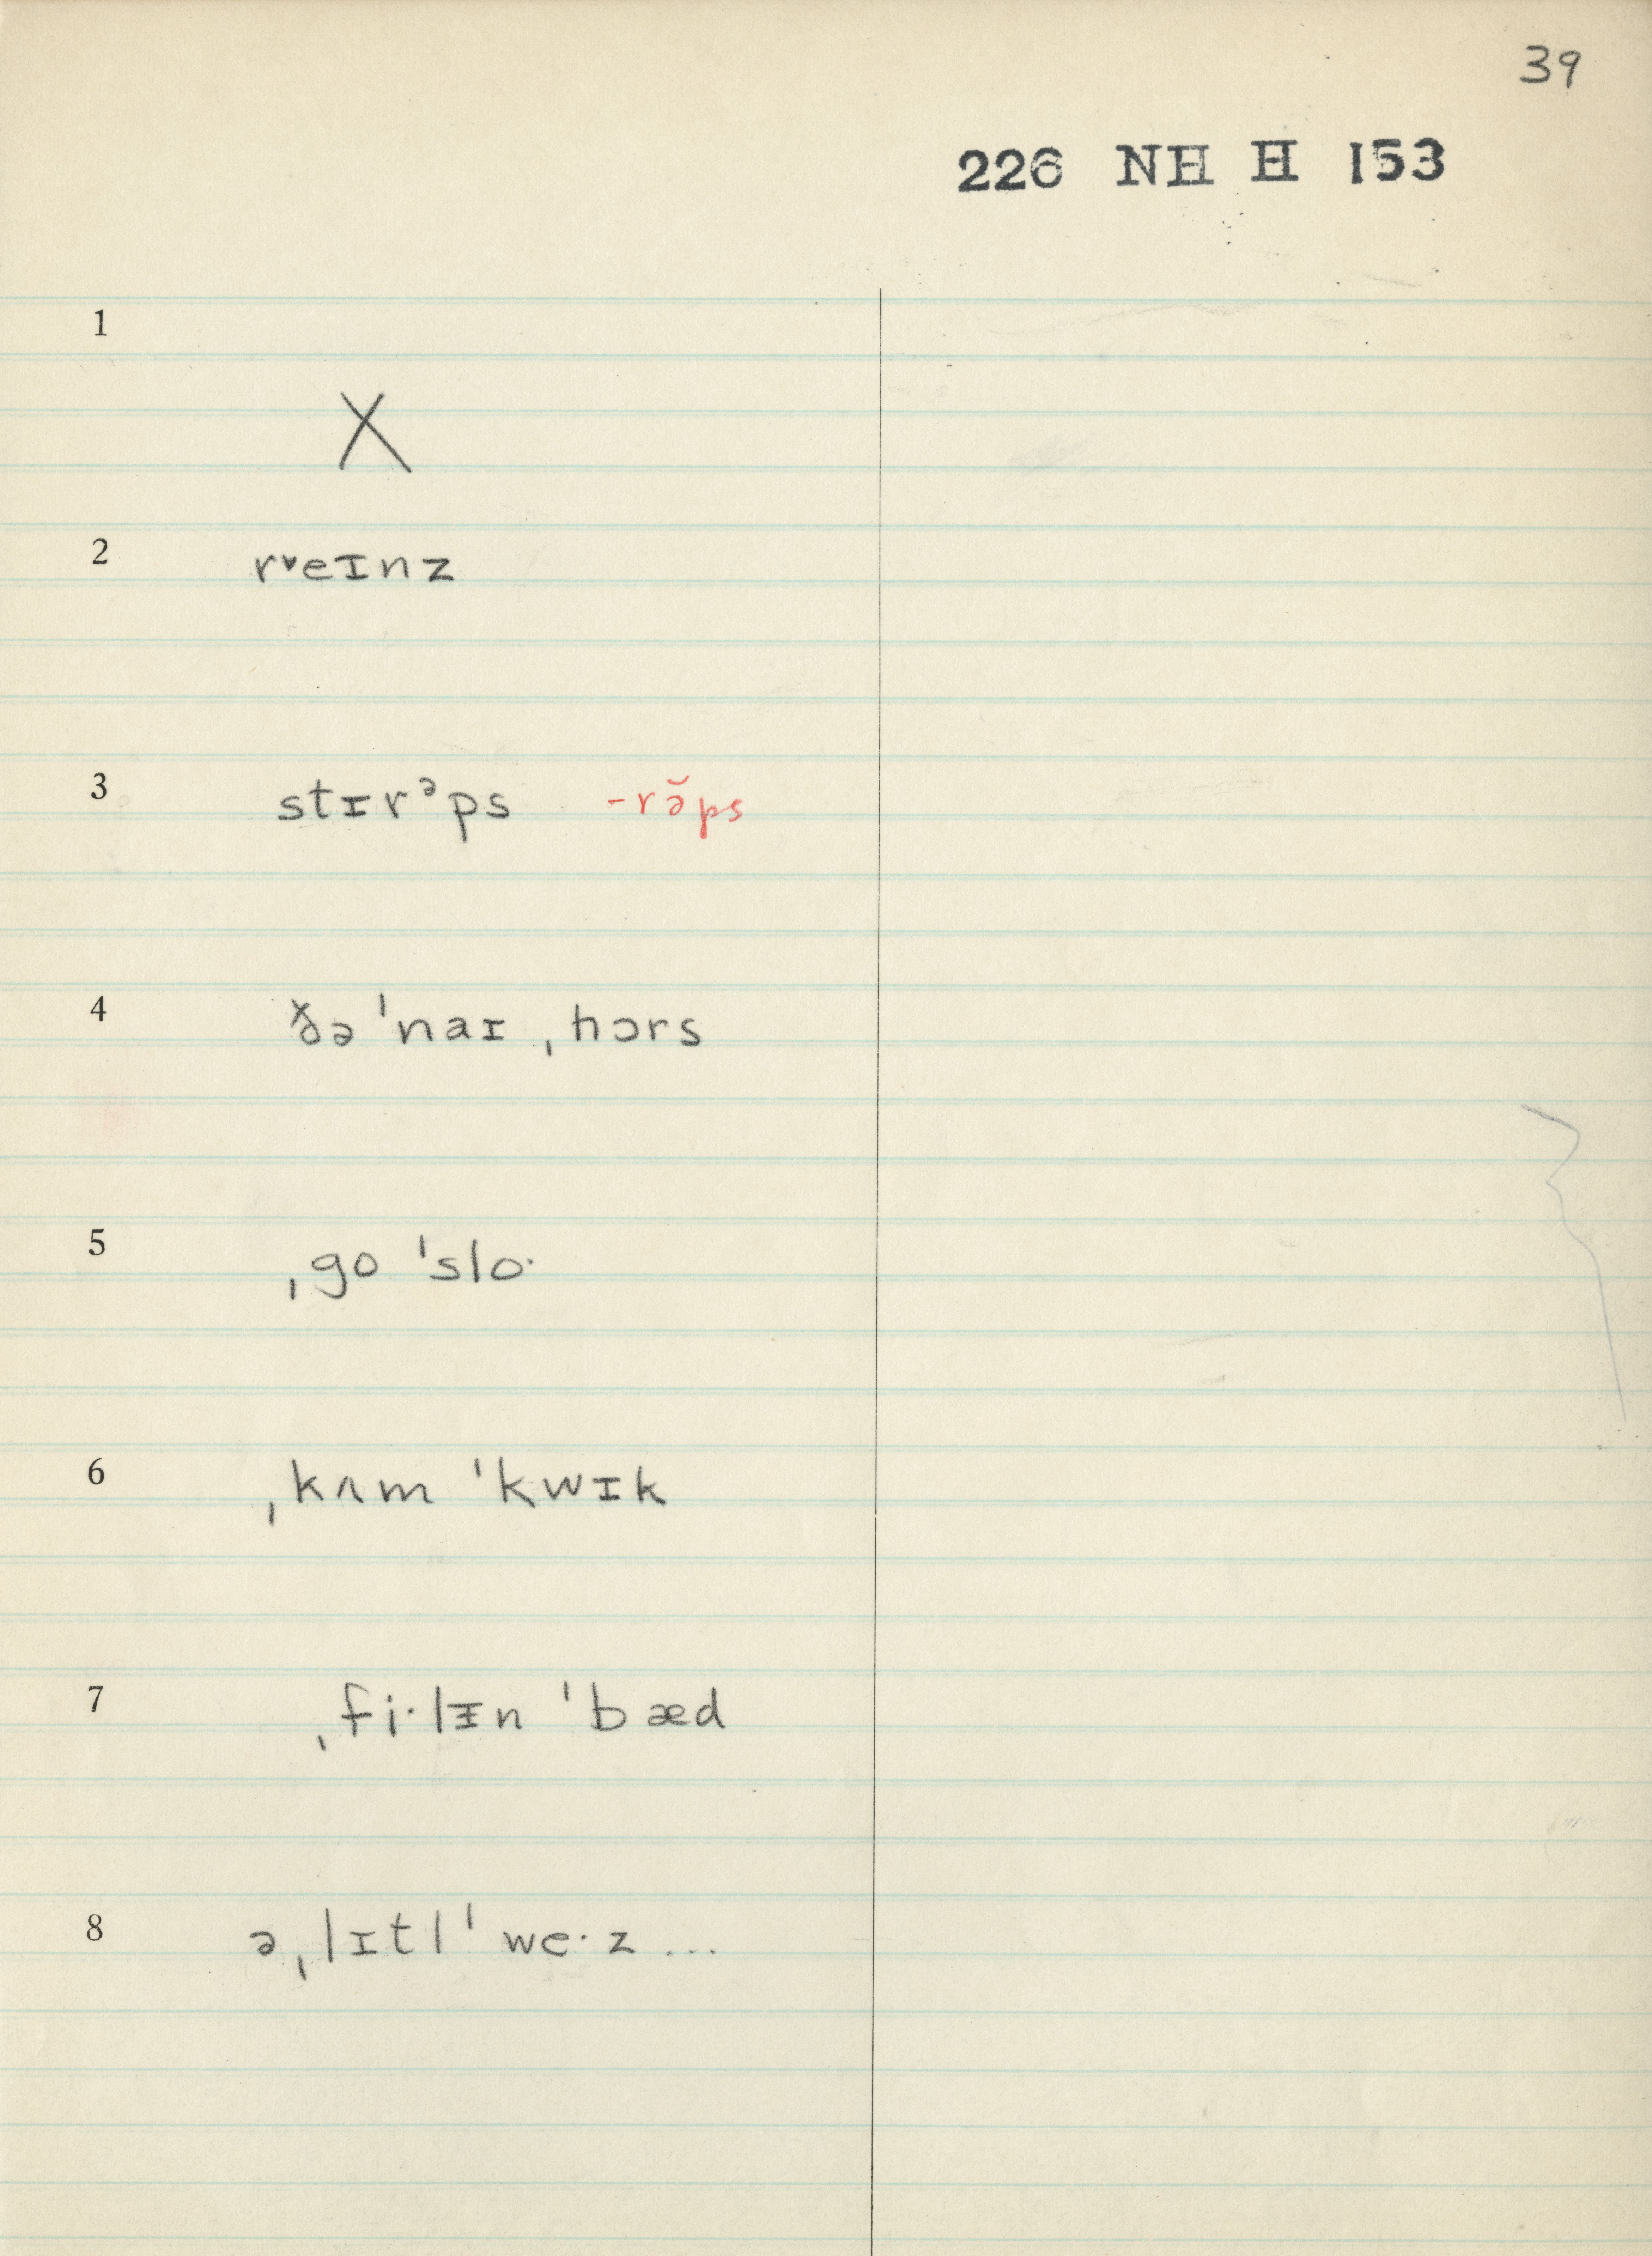 39
226 NH H 153
1
X
2 rᵛeɪnz
3 stɪrᵊps -rə̆ps
4 ðə ˈnaɪ ˌhɔrs
5 ˌgo ˈsloˑ
6 ˌkʌm ˈkwɪk
7 ˌfiˑlɪ̵n ˈbæd
8 ə ˌlɪtl ˈweˑz ...